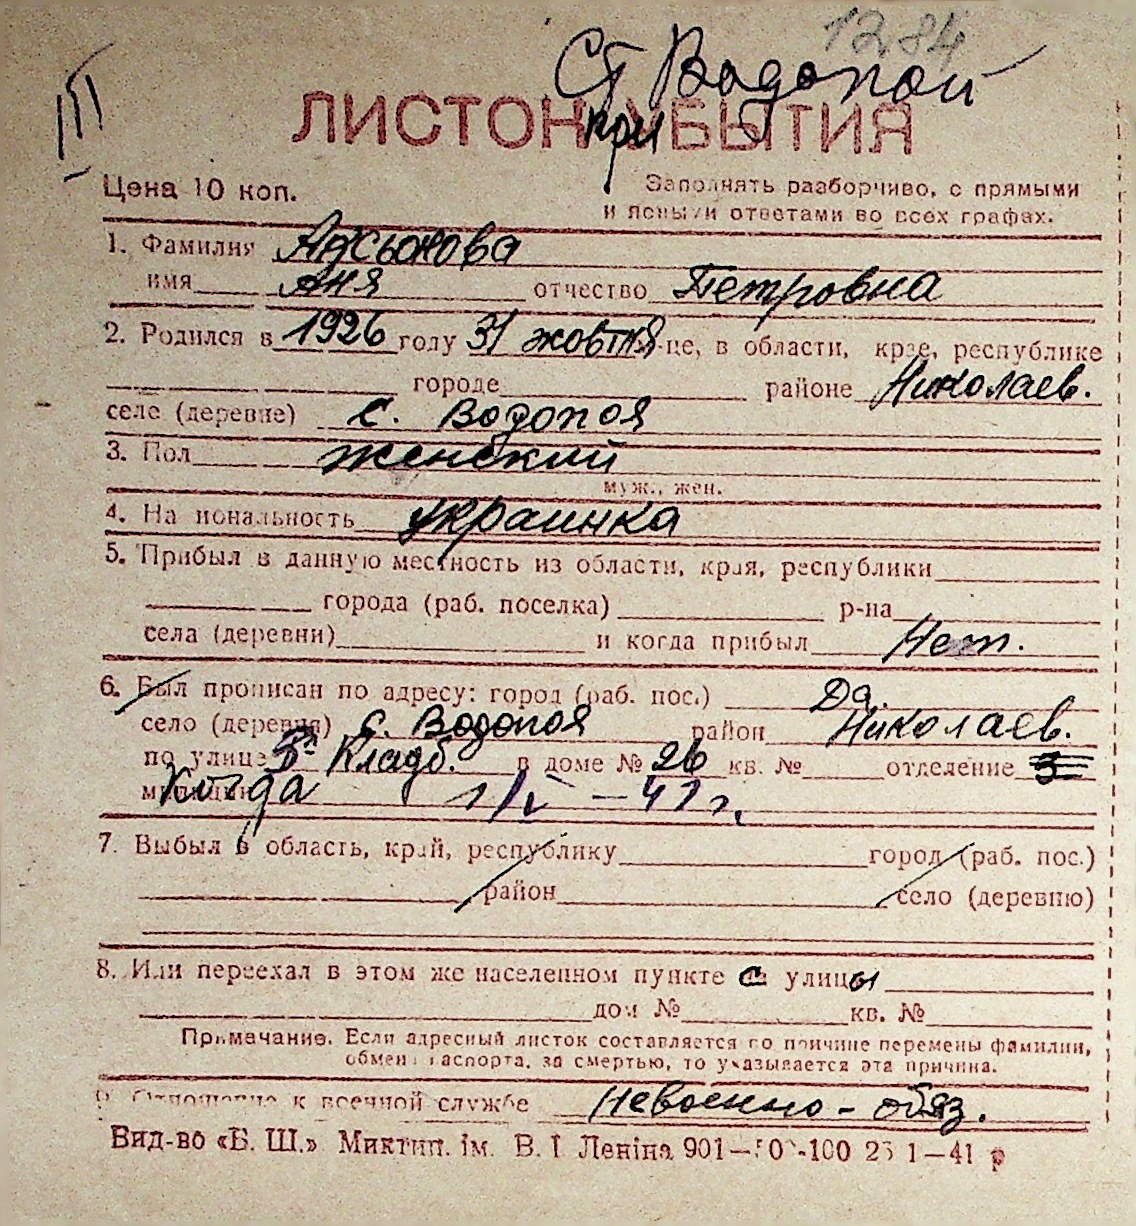 1284
Ст Водопой
III
ЛИСТОК УБЫТИЯ
при
Цена 10 коп.
Заполнять разборчиво, с прямыми
и ясными ответами во всех графах.
1. Фамилия
имя Аня отчество Петровна
2. Родился в 1926 году 31 жовтня -це, в области, крае, республике
городе районе Николаев.
селе (деревне) с. Водопоя
3. Пол женский
муж., жен.
4. На иональность украинка
5. Прибыл в данную местность из области, края, республики
города (раб. поселка) р-на
села (деревни) и когда прибыл Нет.
6. Был прописан по адресу: город (раб. пос.) Да
село (деревня) с. Водопоя район Николаев.
по улице Кладб. в доме № 26 кв. № отделение
милиции Когда 1/V – 41 г.
7. Выбыл в область, край, республику город (раб. пос.)
район село (деревню)
8. Или переехал в этом же населенном пункте с улицы
дом № кв. №
Примечание. Если адресный листок составляется по причине перемены фамилии,
обмена паспорта, за смертью, то указывается эта причина.
9. Отношение к военной службе Невоенно-обяз.
Вид-во «Б. Ш.» Миктип. ім. В. І Леніна 901— -100 1—41 р